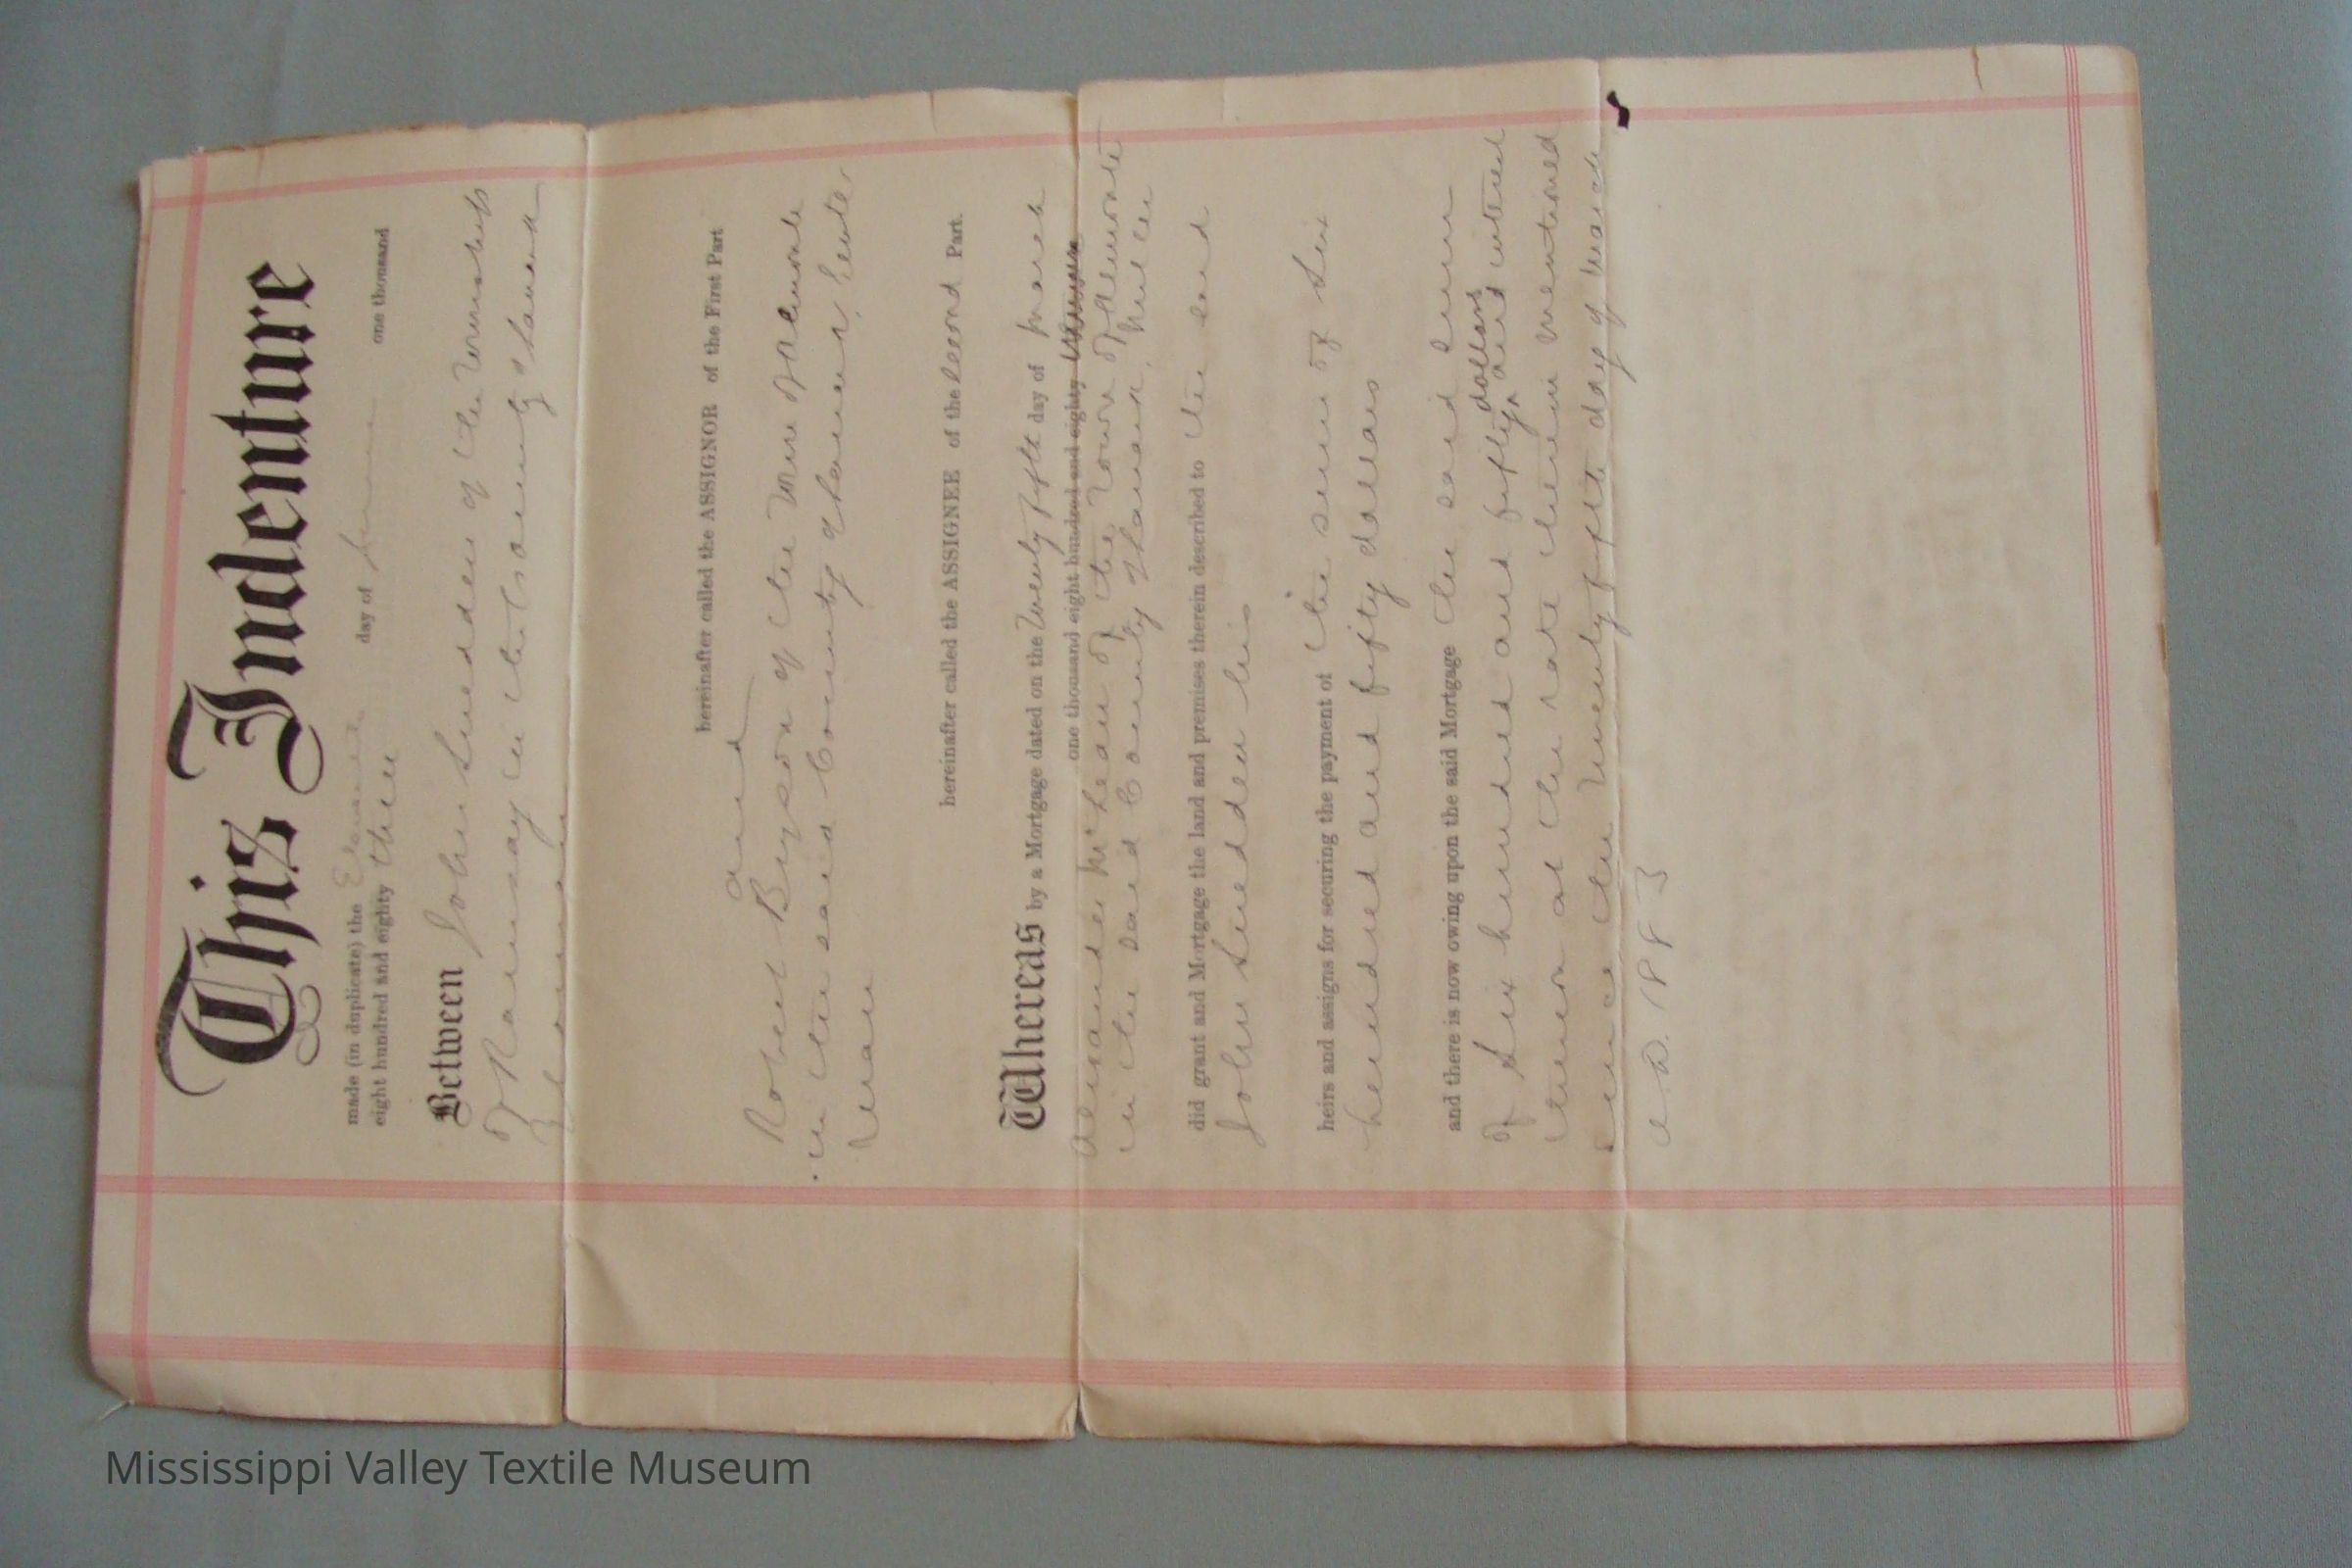 This Indenture
made (in duplicate) the day of one thousand
eight hundred and eighty three
Between John Snedden of the Township
of Ramsay in the County of Lanark
hereinafter called the ASSIGNOR of the First Part
and
Robert Bryson of the Town of Almonte
in the said County of Lanark, Gentle
man
hereinafter called the ASSIGNEE of the second Part.
Whereas by a Mortgage dated on the Twenty fifth day of March
one thousand eight hundred and eighty
Alexander McLean of the Town of Almonte
in the said County of Lanark,
did grant and Mortgage the land and premises therein described to the said
John Snedden his
heirs and assigns for securing the payment of the sum of Six
hundred and fifty dollars
and there is now owing upon the said Mortgage the said sum
of Six hundred and fifty dollars and interest
thereon at the rate therein mentioned
since the twenty fifth day of March
A.D. 1883
Mississippi Valley Textile Museum